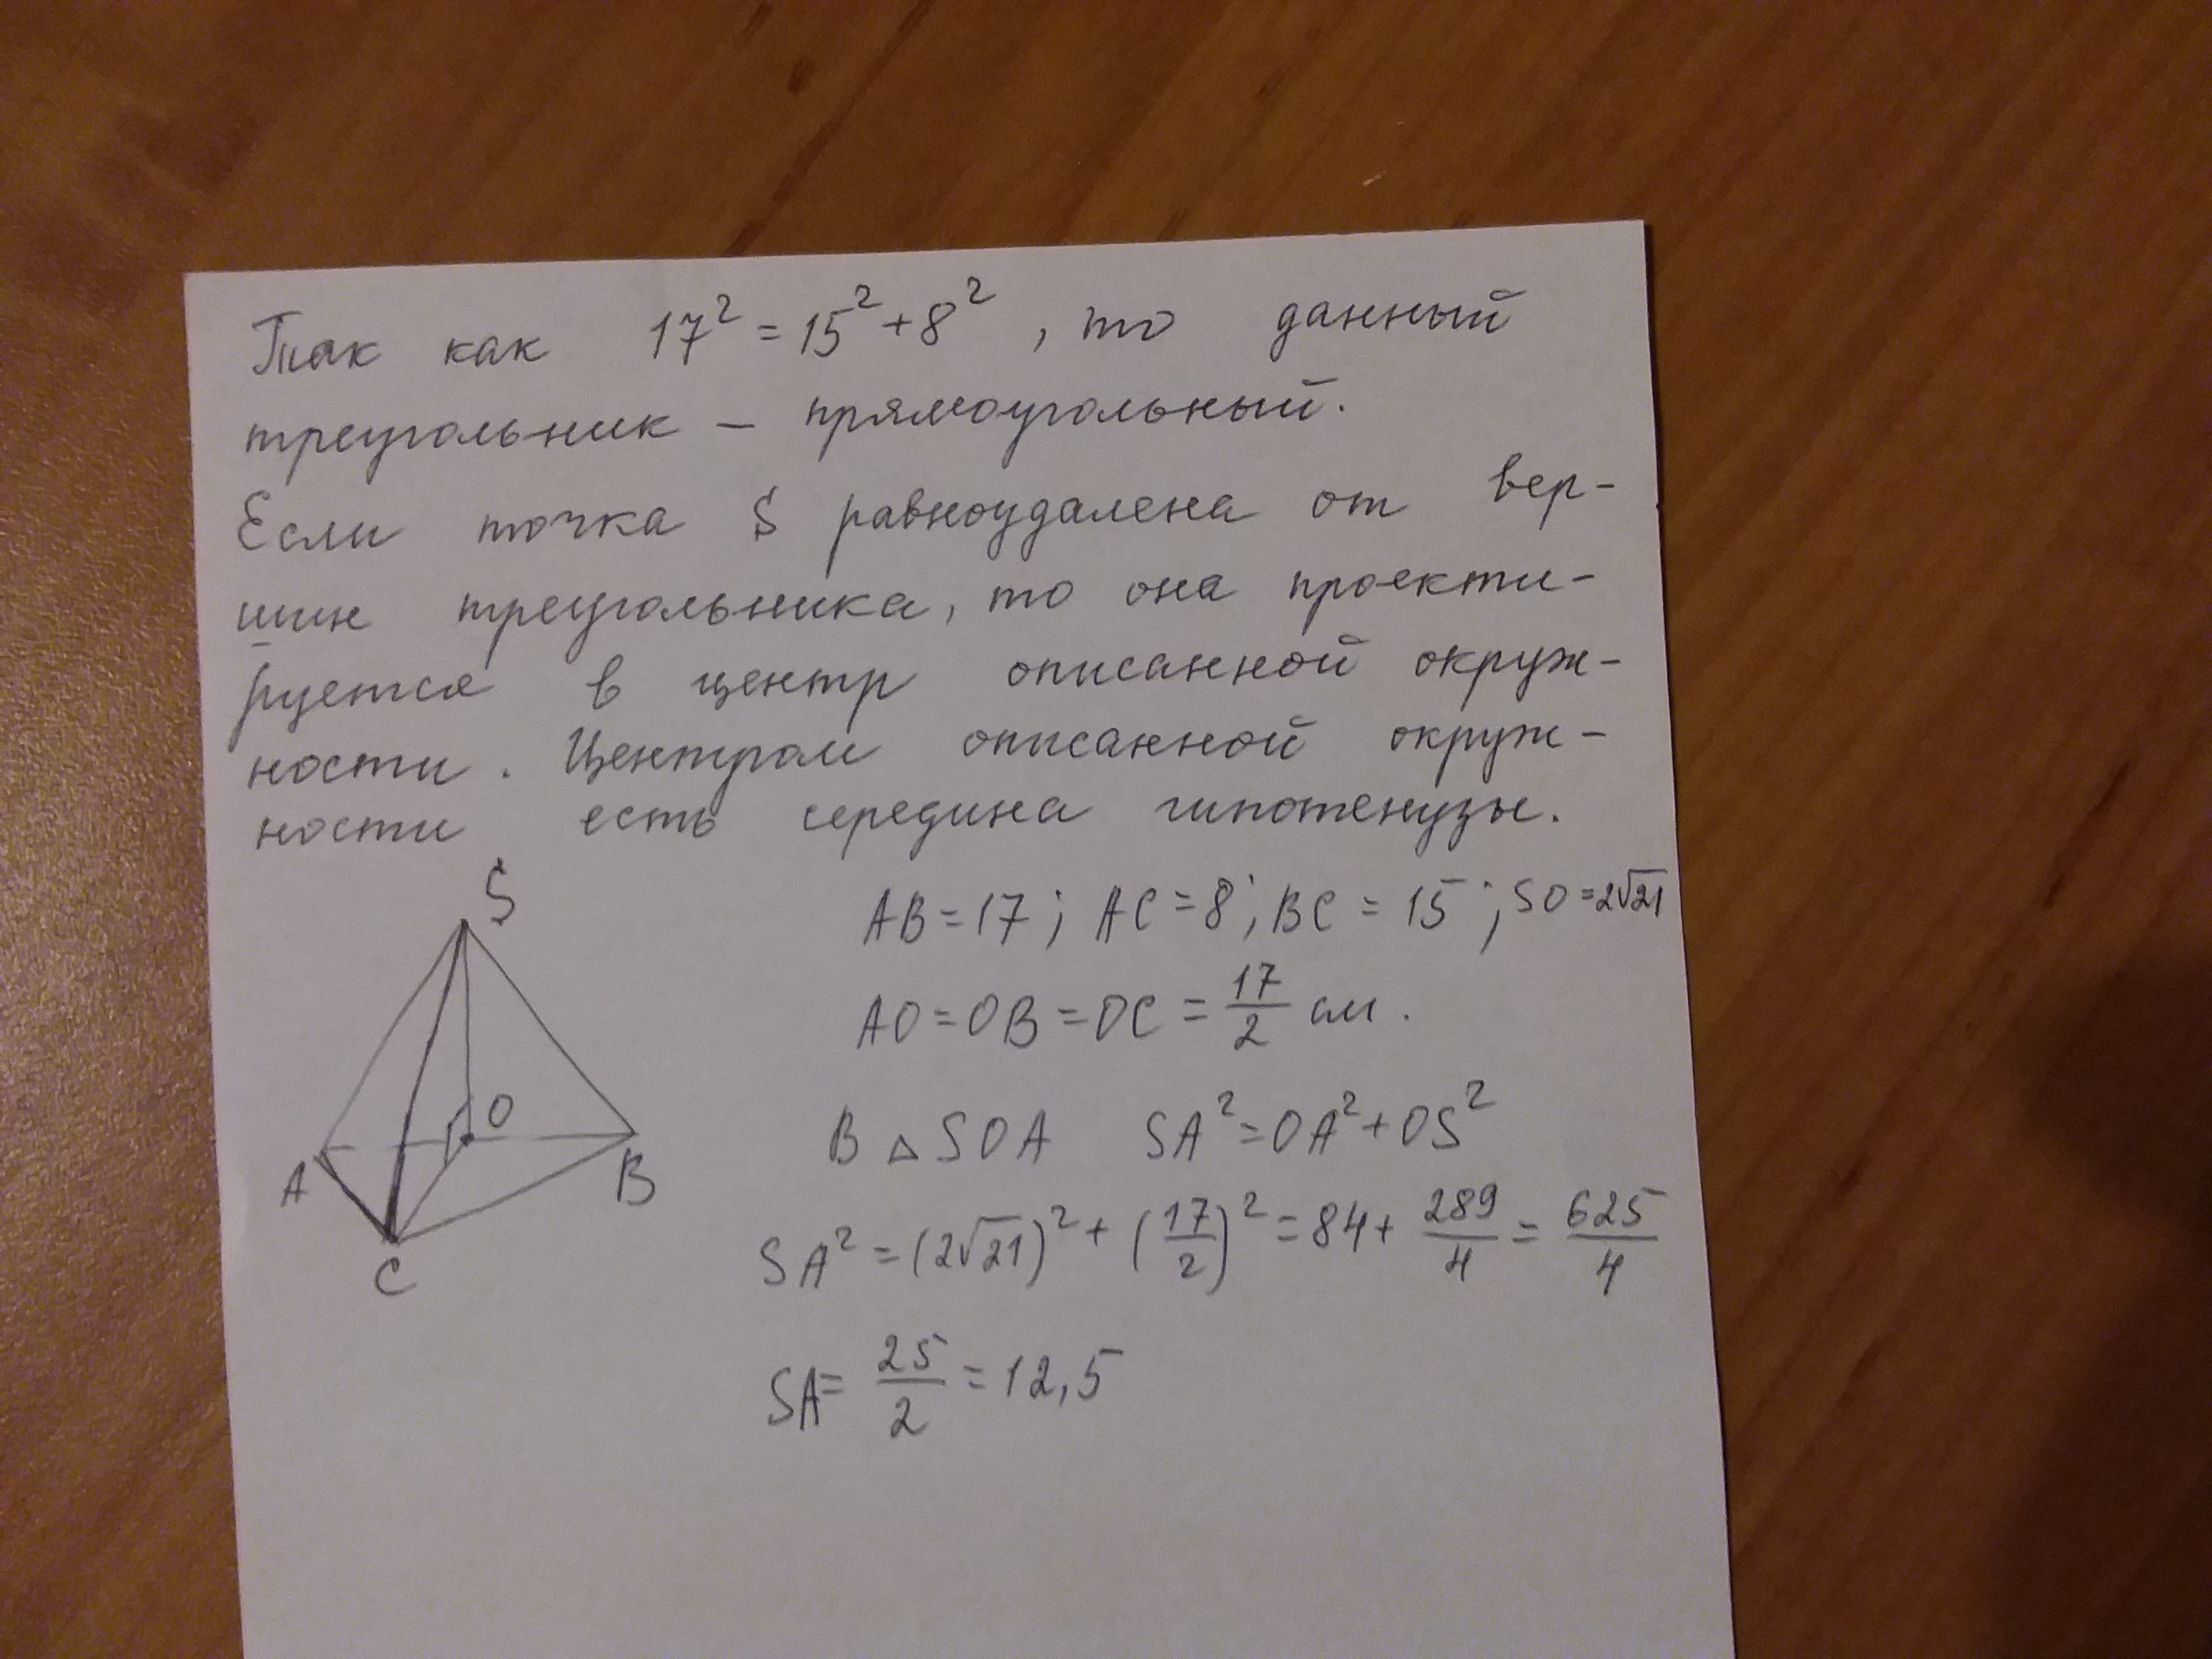 Так как 17² = 15² + 8², то данный
треугольник – прямоугольный.
Если точка S равноудалена от вер-
шин треугольника, то она проекти-
руется в центр описанной окруж-
ности. Центром описанной окруж-
ности есть середина гипотенузы.
S
O
A
B
C
AB = 17; AC = 8; BC = 15; SO = 2√21
AO = OB = OC = 17/2 см.
В △SOA SA² = OA² + OS²
SA² = (2√21)² + (17/2)² = 84 + 289/4 = 625/4
SA = 25/2 = 12,5